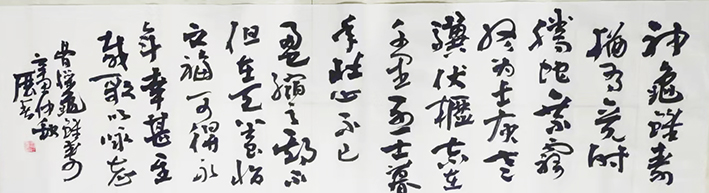 神龜雖壽
猶有竟时
腾蛇乘霧
终为土灰老
驥伏櫪志在
千里烈士暮
年壮心不已
盈縮之期不
但在天養怡
之福可得永
年幸甚至
哉歌以咏志
曹操龜雖寿